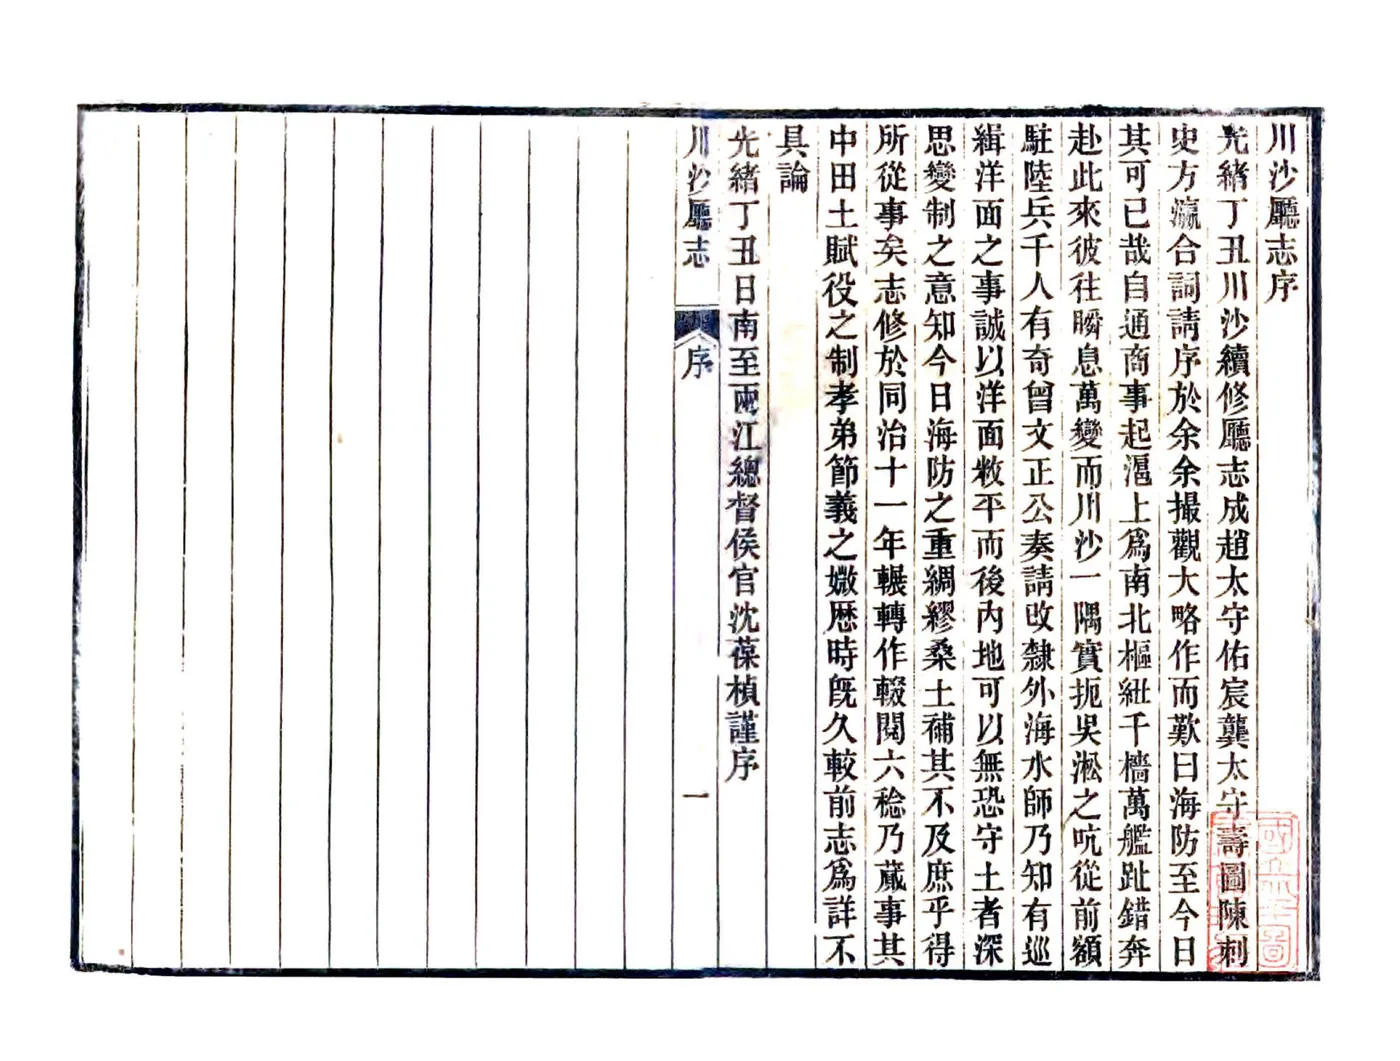 川沙廳志序
光緒丁丑川沙續修廳志成趙太守佑宸龔太守壽圖陳刺
史方瀛合詞請序於余余撮觀大略作而歎曰海防至今日
其可已哉自通商事起滬上爲南北樞紐千檣萬艦趾錯奔
赴此來彼往瞬息萬變而川沙一隅實扼吳淞之吭從前額
駐陸兵千人有奇曾文正公奏請改隸外海水師乃知有巡
緝洋面之事誠以洋面敉平而後內地可以無恐守土者深
思變制之意知今日海防之重綢繆桑土補其不及庶乎得
所從事矣志修於同治十一年輾轉作輟閱六稔乃蕆事其
中田土賦役之制孝弟節義之媺歷時旣久較前志爲詳不
具論
光緒丁丑日南至兩江總督侯官沈葆楨謹序
川沙廳志
序
一